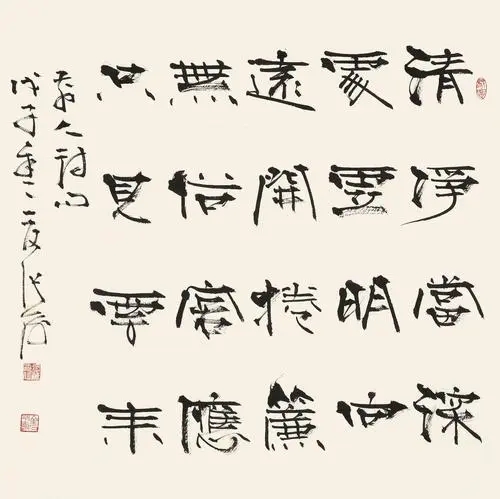 清淨當深
處虛明向
遠開捲簾
無俗客應
只見雲來
人詩
戊子年